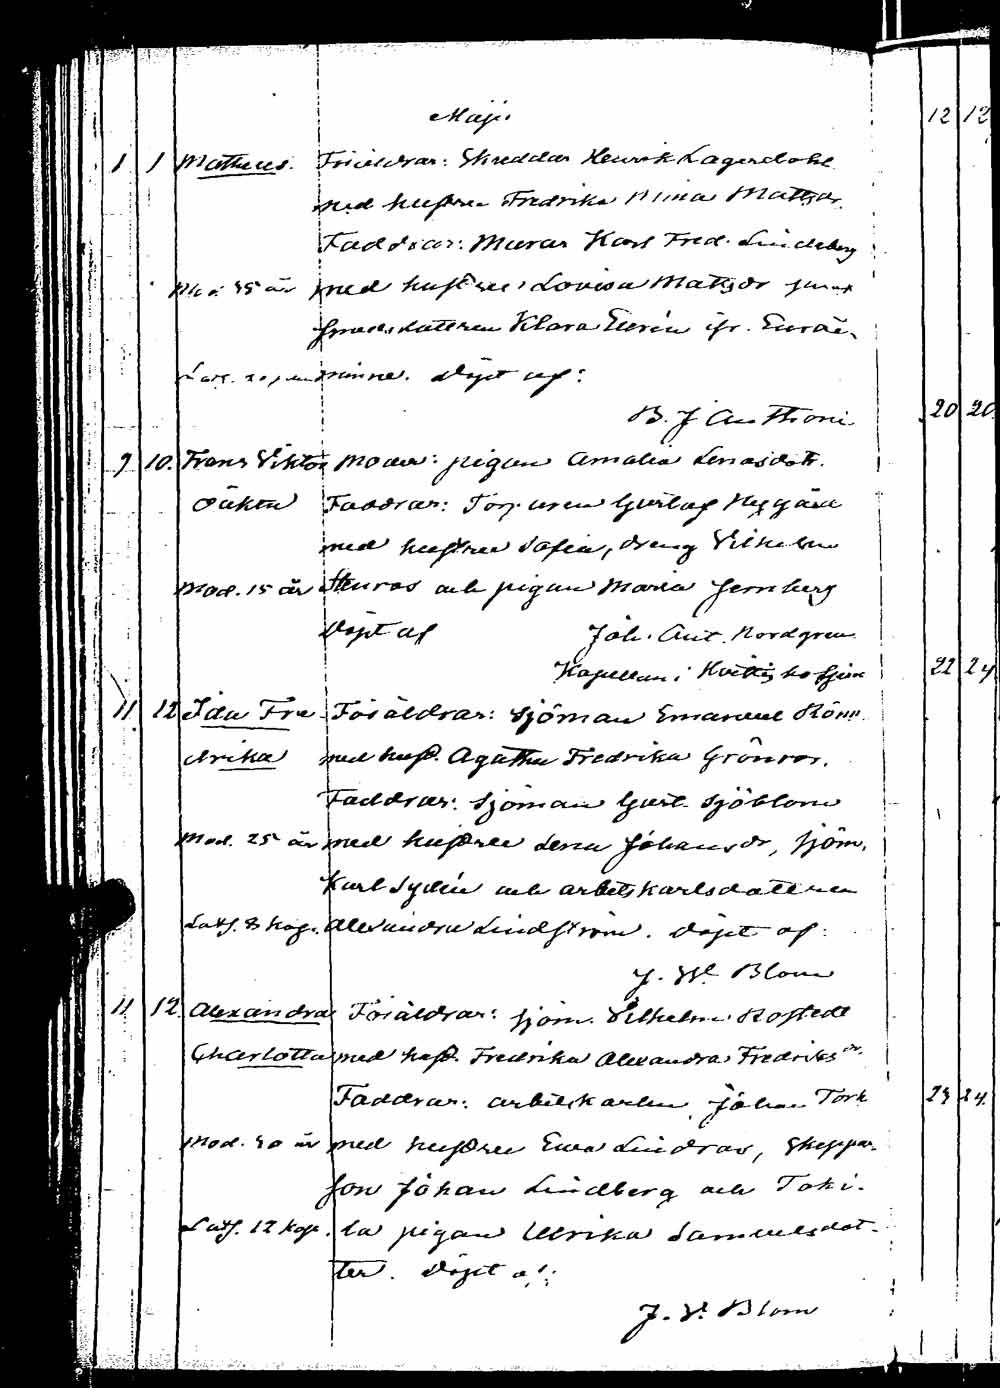 Maji
12 12
1 1 Matheus. Föräldrar: Skreddar Henrik Lagerdahl
med hustru Fredrika Mina Mattsdr.
Faddrar: Murar Karl Fred. Lindeberg
Mod. 35 år med hustru Lovisa Mattsdr samt
Klara Eurén ifr. Euraå-
minne. Döpt af:
B. J. Anthoni
20 20
9 10. Frans Viktor Moder: pigan Amalia Lenasdotr.
oäkta Faddrar: Torparen Gustaf Nygård
med hustru Sofia, dreng Vilhelm
Mod. 15 år Stenros och pigan Maria Jernberg
Döpt af Joh. Ant. Nordgren
Kapellan i Hvittisbofjerd
22 24
11 12 Ida Fre- Föräldrar: Sjöman Emanuel Rönn
drika med hust. Agatha Fredrika Grönros.
Faddrar: Sjöman Gust. Sjöblom
Mod. 25 år med hustru Lena Johansdr, Sjöm.
Karl Sydén och arbetskarlsdottren
8 kop. Alexandra Lindström. Döpt af:
J. W. Blom
11 12. Alexandra Föräldrar: Sjöm. Vilhelm Rostedt
Charlotta med hust. Fredrika Alexandra Fredriksdr.
Faddrar: arbetskarlen Johan Tork
24
Mod. 30 år med hustru Eva Lindroos, Skeppar-
son Johan Lindberg och Toki-
12 kop. la pigan Ulrika Samuelsdot-
ter. Döpt af:
J. W. Blom